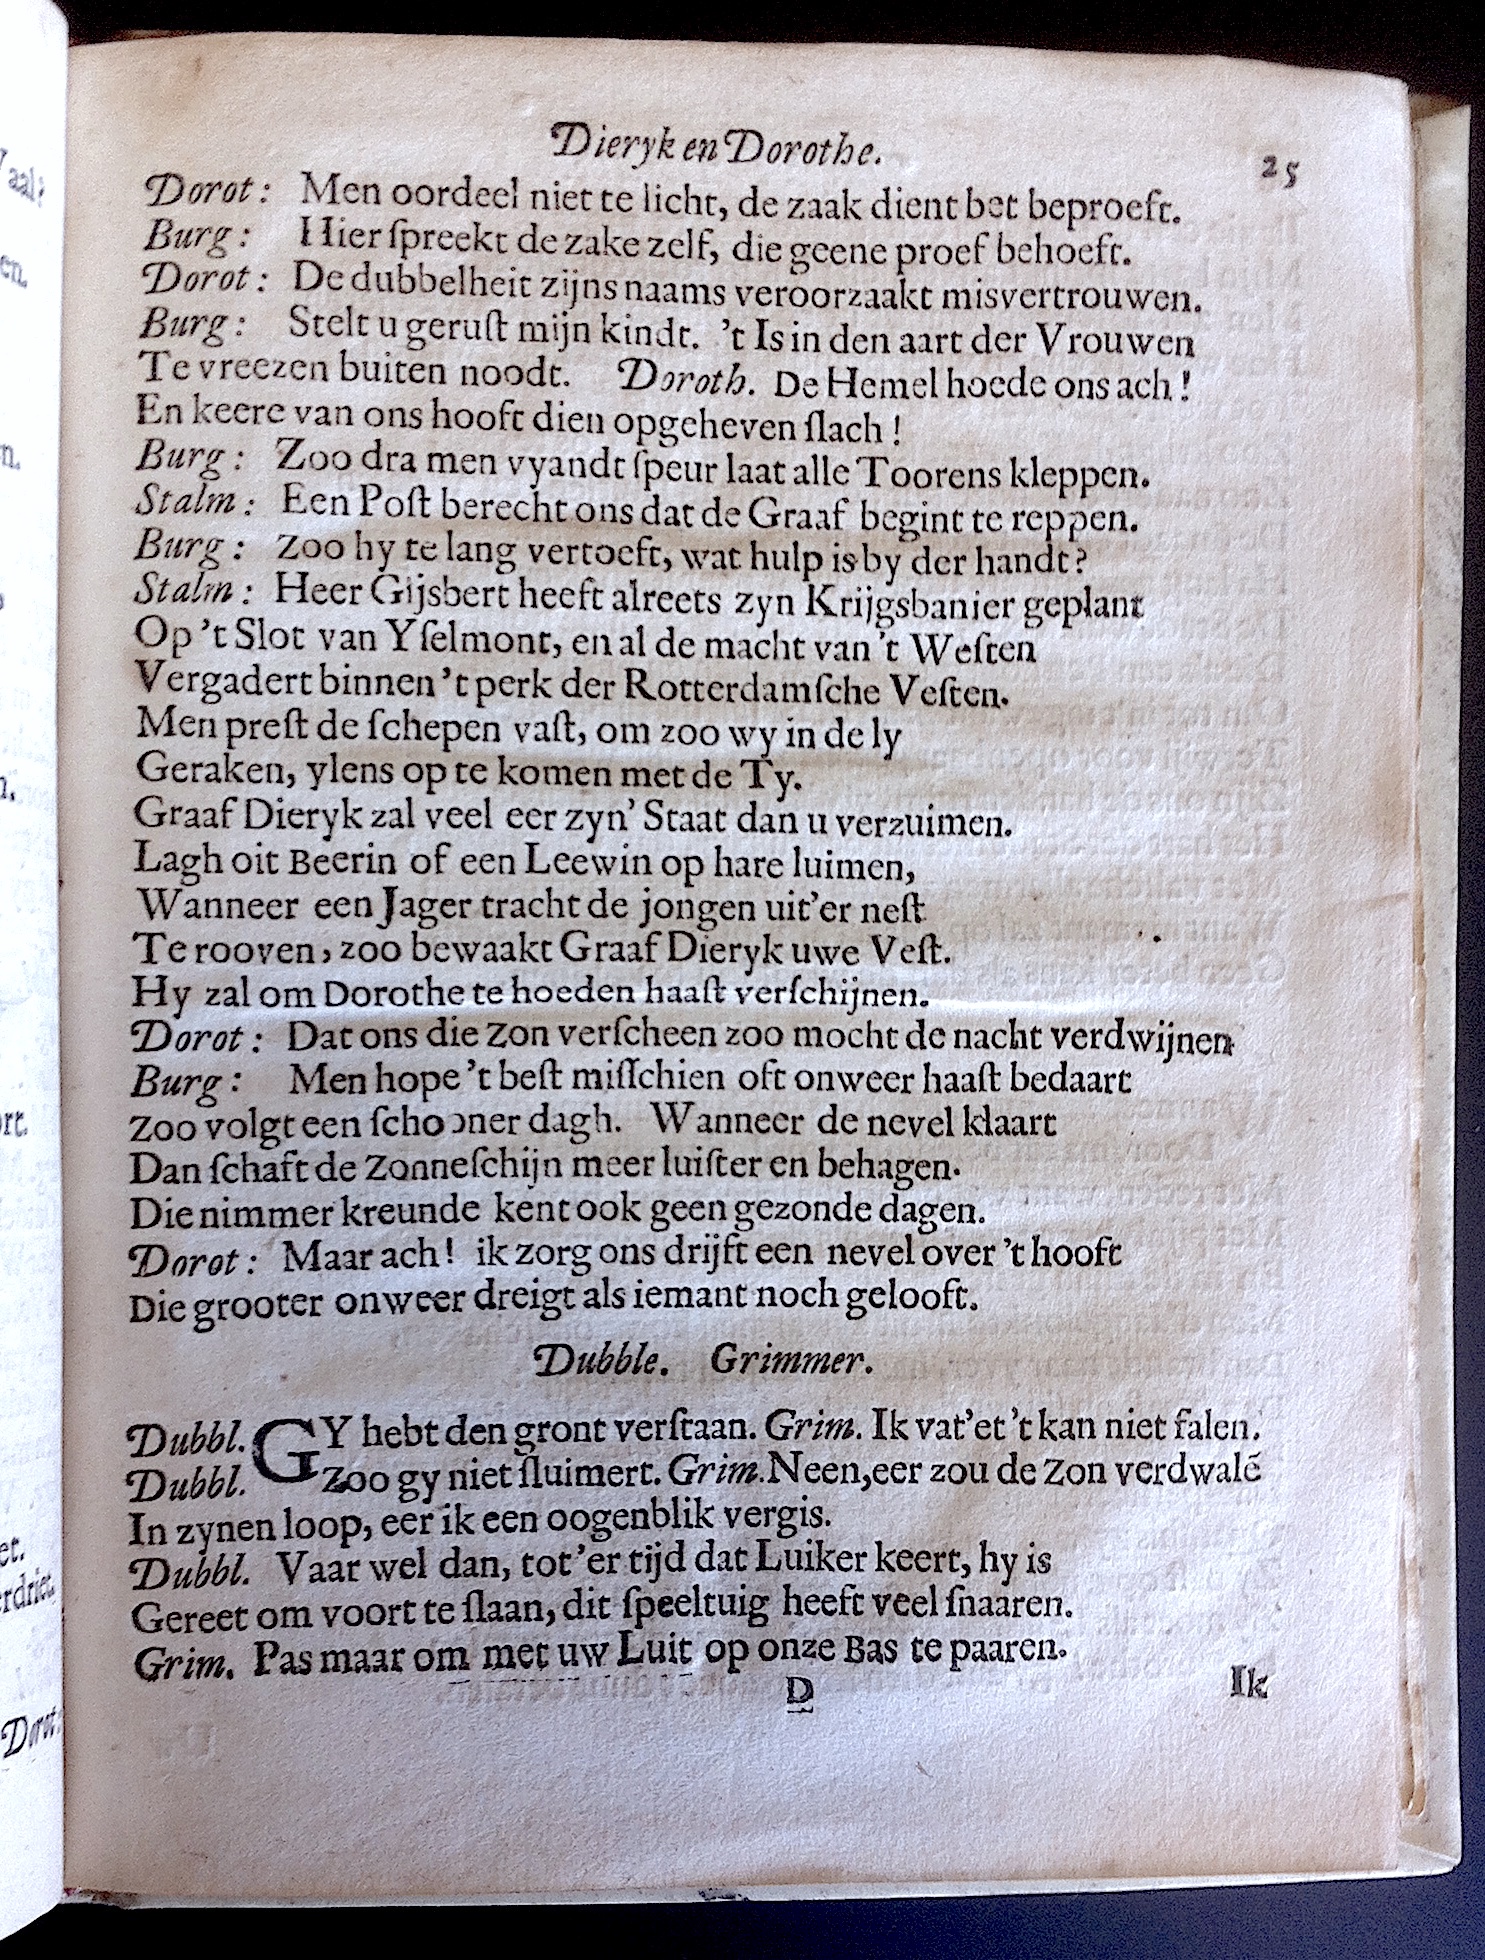 Dieryk en Dorothe. 25
Dorot: Men oordeel niet te licht, de zaak dient bet beproeft.
Burg: Hier ſpreekt de zake zelf, die geene proef behoeft.
Dorot: De dubbelheit zijns naams veroorzaakt misvertrouwen.
Burg: Stelt u geruſt mijn kindt. 't Is in den aart der Vrouwen
Te vreezen buiten noodt. Doroth. De Hemel hoede ons ach!
En keere van ons hooft dien opgeheven ſlach!
Burg: Zoo dra men vyandt ſpeur laat alle Toorens kleppen.
Stalm: Een Poſt berecht ons dat de Graaf begint te reppen.
Burg: Zoo hy te lang vertoeft, wat hulp is by der handt?
Stalm: Heer Gijsbert heeft alreets zyn Krijgsbanier geplant
Op 't Slot van Yſelmont, en al de macht van 't Weſten
Vergadert binnen 't perk der Rotterdamſche Veſten.
Men preſt de ſchepen vaſt, om zoo wy in de ly
Geraken, ylens op te komen met de Ty.
Graaf Dieryk zal veel eer zyn' Staat dan u verzuimen.
Lagh oit Beerin of een Leewin op hare luimen,
Wanneer een Jager tracht de jongen uit'er neſt
Te rooven, zoo bewaakt Graaf Dieryk uwe Veſt.
Hy zal om Dorothe te hoeden haaſt verſchijnen.
Dorot: Dat ons die Zon verſcheen zoo mocht de nacht verdwijnen
Burg: Men hope 't beſt miſſchien oft onweer haaſt bedaart
Zoo volgt een ſchooner dagh. Wanneer de nevel klaart
Dan ſchaft de Zonneſchijn meer luiſter en behagen.
Die nimmer kreunde kent ook geen gezonde dagen.
Dorot: Maar ach! ik zorg ons drijft een nevel over 't hooft
Die grooter onweer dreigt als iemant noch gelooft.
Dubble. Grimmer.
Dubbl. GY hebt den gront verſtaan. Grim. Ik vat'et 't kan niet falen.
Dubbl. Zoo gy niet ſluimert. Grim. Neen, eer zou de Zon verdwalē
In zynen loop, eer ik een oogenblik vergis.
Dubbl. Vaar wel dan, tot'er tijd dat Luiker keert, hy is
Gereet om voort te ſlaan, dit ſpeeltuig heeft veel ſnaaren.
Grim. Pas maar om met uw Luit op onze Bas te paaren.
D Ik